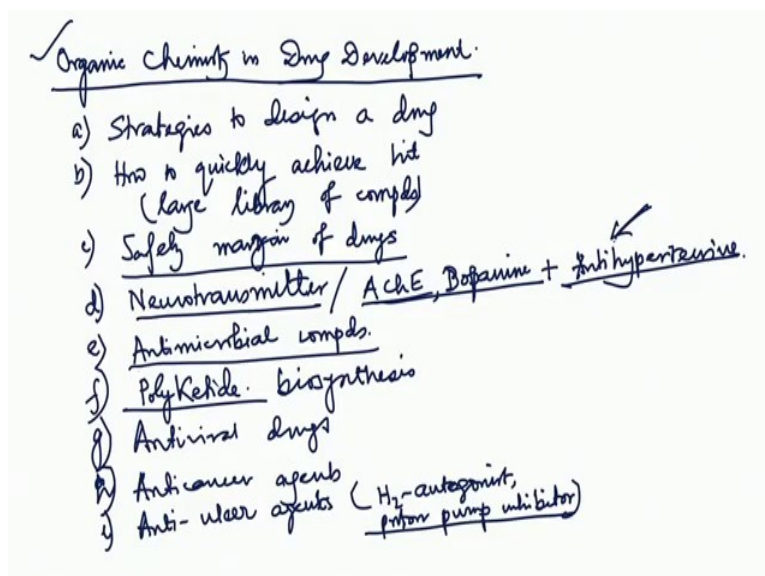 ✓Organic Chemistry in Drug Development.
a) Strategies to design a drug
b) How to quickly achieve hit
(large library of compds)
c) Safety margin of drugs
d) Neurotransmitter / AChE, Dopamine + Antihypertensive.
e) Antimicrobial compds.
f) PolyKetide. biosynthesis
g) Antiviral drugs
h) Anticancer agents
i) Anti-ulcer agents (H2-antagonist,
proton pump inhibitor)